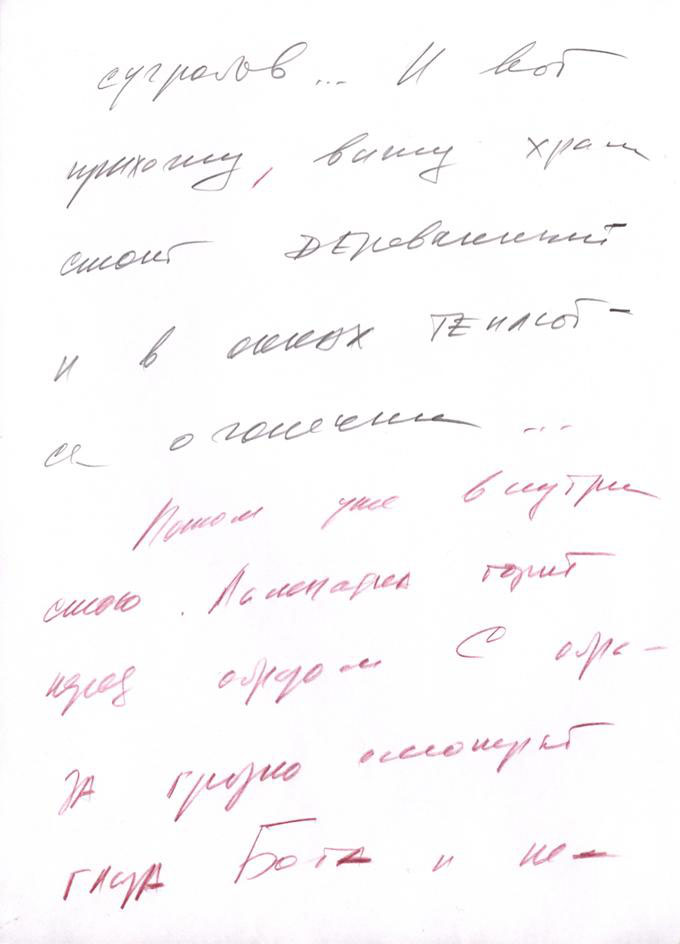 сугробов... И вот
прихожу, вижу храм
стоит деревянный
и в окнах теплют-
ся огонечки ...
Потом уже внутри
стою. Лампадка горит
перед образом С обра-
за грозно смотрят
глаза Бога и не-